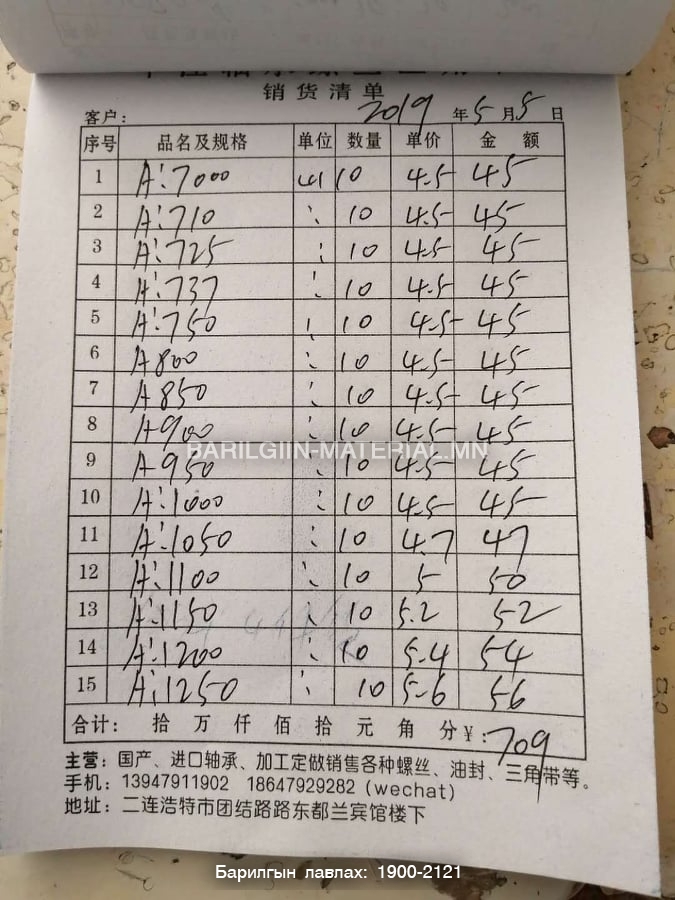 销货清单
客户: 2019 年 5 月 5 日
序号 品名及规格 单位 数量 单价 金 额
1 A:7000 10 4.5 45
2 A:710 10 4.5 45
3 A:725 10 4.5 45
4 A:737 10 4.5 45
5 A:750 10 4.5 45
6 A800 10 4.5 45
7 A850 10 4.5 45
8 A900 10 4.5 45
BARILGIIN-MATERIAL.MN
9 A950 10 4.5 45
10 A:1000 10 4.5 45
11 A:1050 10 4.7 47
12 A:1100 10 5 50
13 A:1150 10 5.2 52
14 A:1200 10 5.4 54
15 A:1250 10 5.6 56
合计: 拾 万 仟 佰 拾 元 角 分¥: 709
主营: 国产、进口轴承、加工定做销售各种螺丝、油封、三角带等。
手机: 13947911902 18647929282 (wechat)
地址: 二连浩特市团结路路东都兰宾馆楼下
Барилгын лавлах: 1900-2121